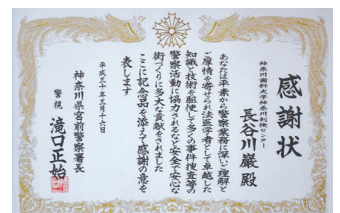 感謝状
神奈川歯科大学神奈川剖検センター
長谷川巌殿
あなたは平素から警察業務に深いご理解と
ご厚情を寄せられ法医学者として卓越した
知識と技術を駆使して多くの事件捜査等の
警察活動に協力されるなど安全で安心な
街づくりに多大な貢献をされました
ここに記念品を添えて感謝の意を
表します
平成三十年三月十六日
神奈川県宮前警察署長
警視 滝口正始